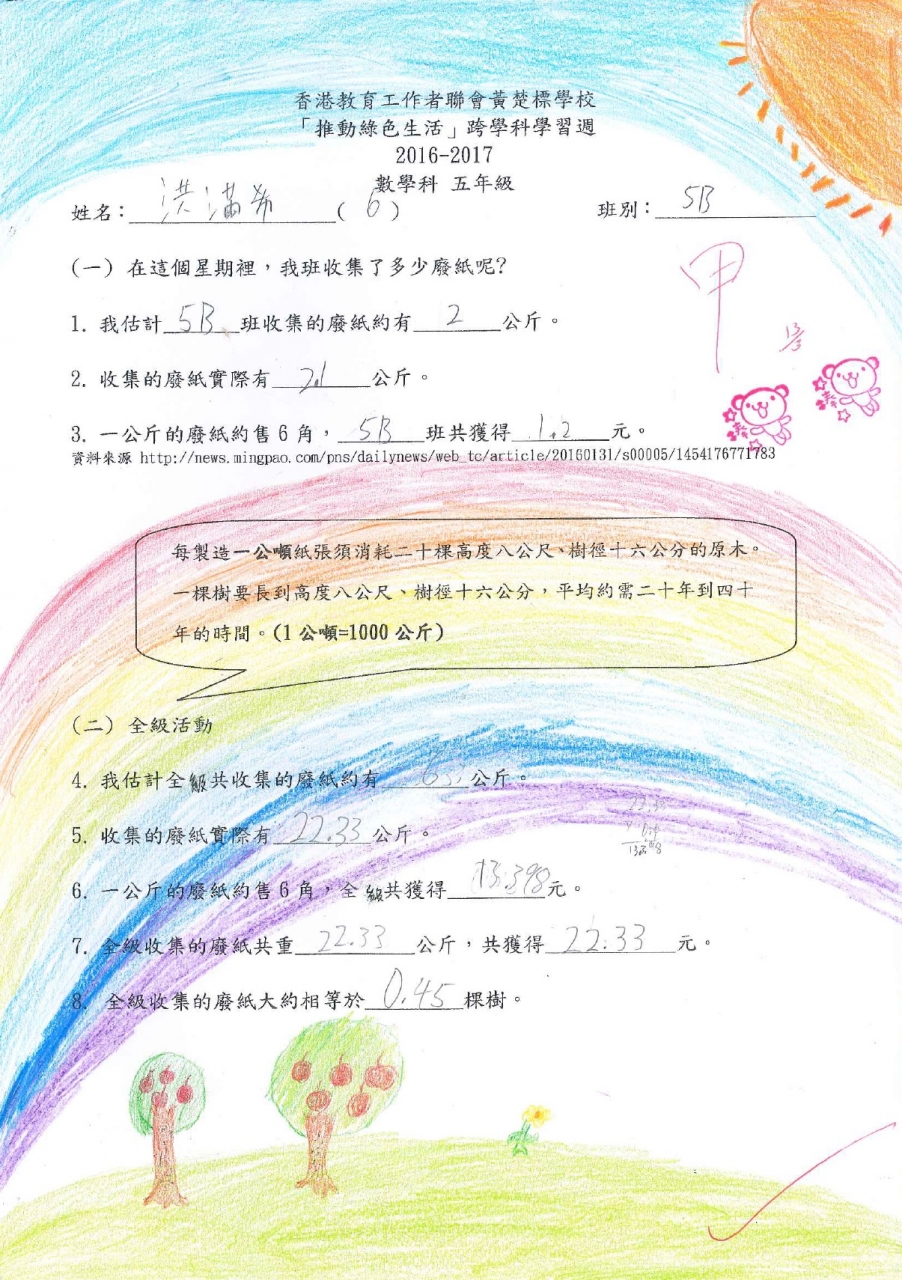 香港教育工作者聯會黃楚標學校
「推動綠色生活」跨學科學習週
2016-2017
數學科 五年級
姓名：洪滿希(6) 班別：5B
(一) 在這個星期裡，我班收集了多少廢紙呢?
甲
1. 我估計5B班收集的廢紙約有2公斤。
2. 收集的廢紙實際有2.1公斤。
3. 一公斤的廢紙約售6角，5B班共獲得1.2元。
資料來源 http://news.mingpao.com/pns/dailynews/web_tc/article/20160131/s00005/1454176771783
每製造一公噸紙張須消耗二十棵高度八公尺、樹徑十六公分的原木。
一棵樹要長到高度八公尺、樹徑十六公分，平均約需二十年到四十
年的時間。(1 公噸=1000 公斤)
(二) 全級活動
4. 我估計全級共收集的廢紙約有公斤。
5. 收集的廢紙實際有22.33公斤。
6. 一公斤的廢紙約售6角，全級共獲得13.398元。
7. 全級收集的廢紙共重22.33公斤，共獲得22.33元。
8. 全級收集的廢紙大約相等於0.45棵樹。